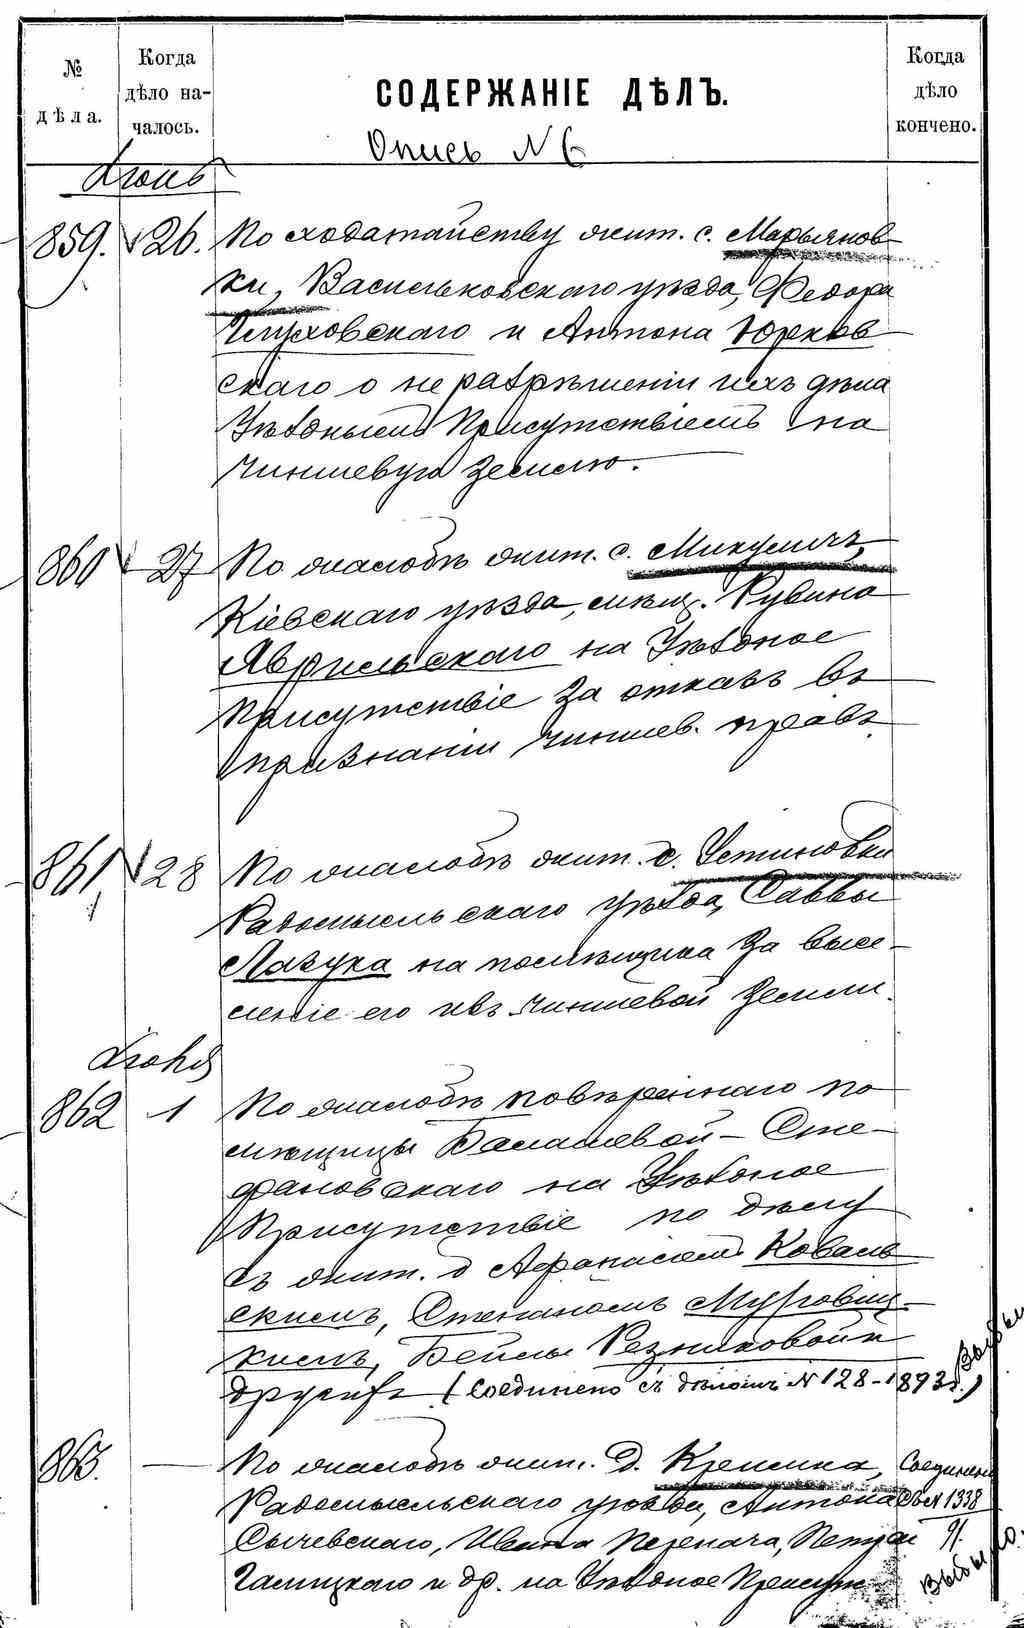 № дѣла.
Когда дѣло на-
чалось.
СОДЕРЖАНІЕ ДѢЛЪ.
Когда дѣло кончено.
Опись N 6
859. 26. По ходатайству жит. с. Марьянов-
ки, Васильковскаго уѣзда, Федора
Глуховскаго и Антона Юрков-
скаго о не разрѣшеніи ихъ дѣла
Уѣзднымъ Присутствіемъ на
чиншевую землю.
860 27 По жалобѣ жит. с. Микуличъ,
Кіевскаго уѣзда, мѣщ. Рувина
Яврильскаго на Уѣздное
Присутствіе за отказъ въ
признаніи чиншев. правъ.
861, 28 По жалобѣ жит. с. Устиновки
Радомысльскаго уѣзда, Саввы
Лазука на помѣщика за высе-
леніе его изъ чиншевой земли.
862 1 По жалобѣ повѣреннаго по-
мѣщицы Балашевой – Сте-
фановскаго на Уѣздное
Присутствіе по дѣлу
съ жит. д Афанасіемъ Коваль-
скимъ, Степаномъ
кимъ, Бейлы Резниковой и
другихъ (Соединено съ дѣломъ N 128-1893г.)
Выбыл
863. — По жалобѣ жит. д. Кремика,
Радомысльскаго уѣзда, Антона
Сычевскаго, Ивана Перепача, Петра
Галицкаго и др. на Уѣздное Присут-
Соединено
съ N 1338
Выбыло.